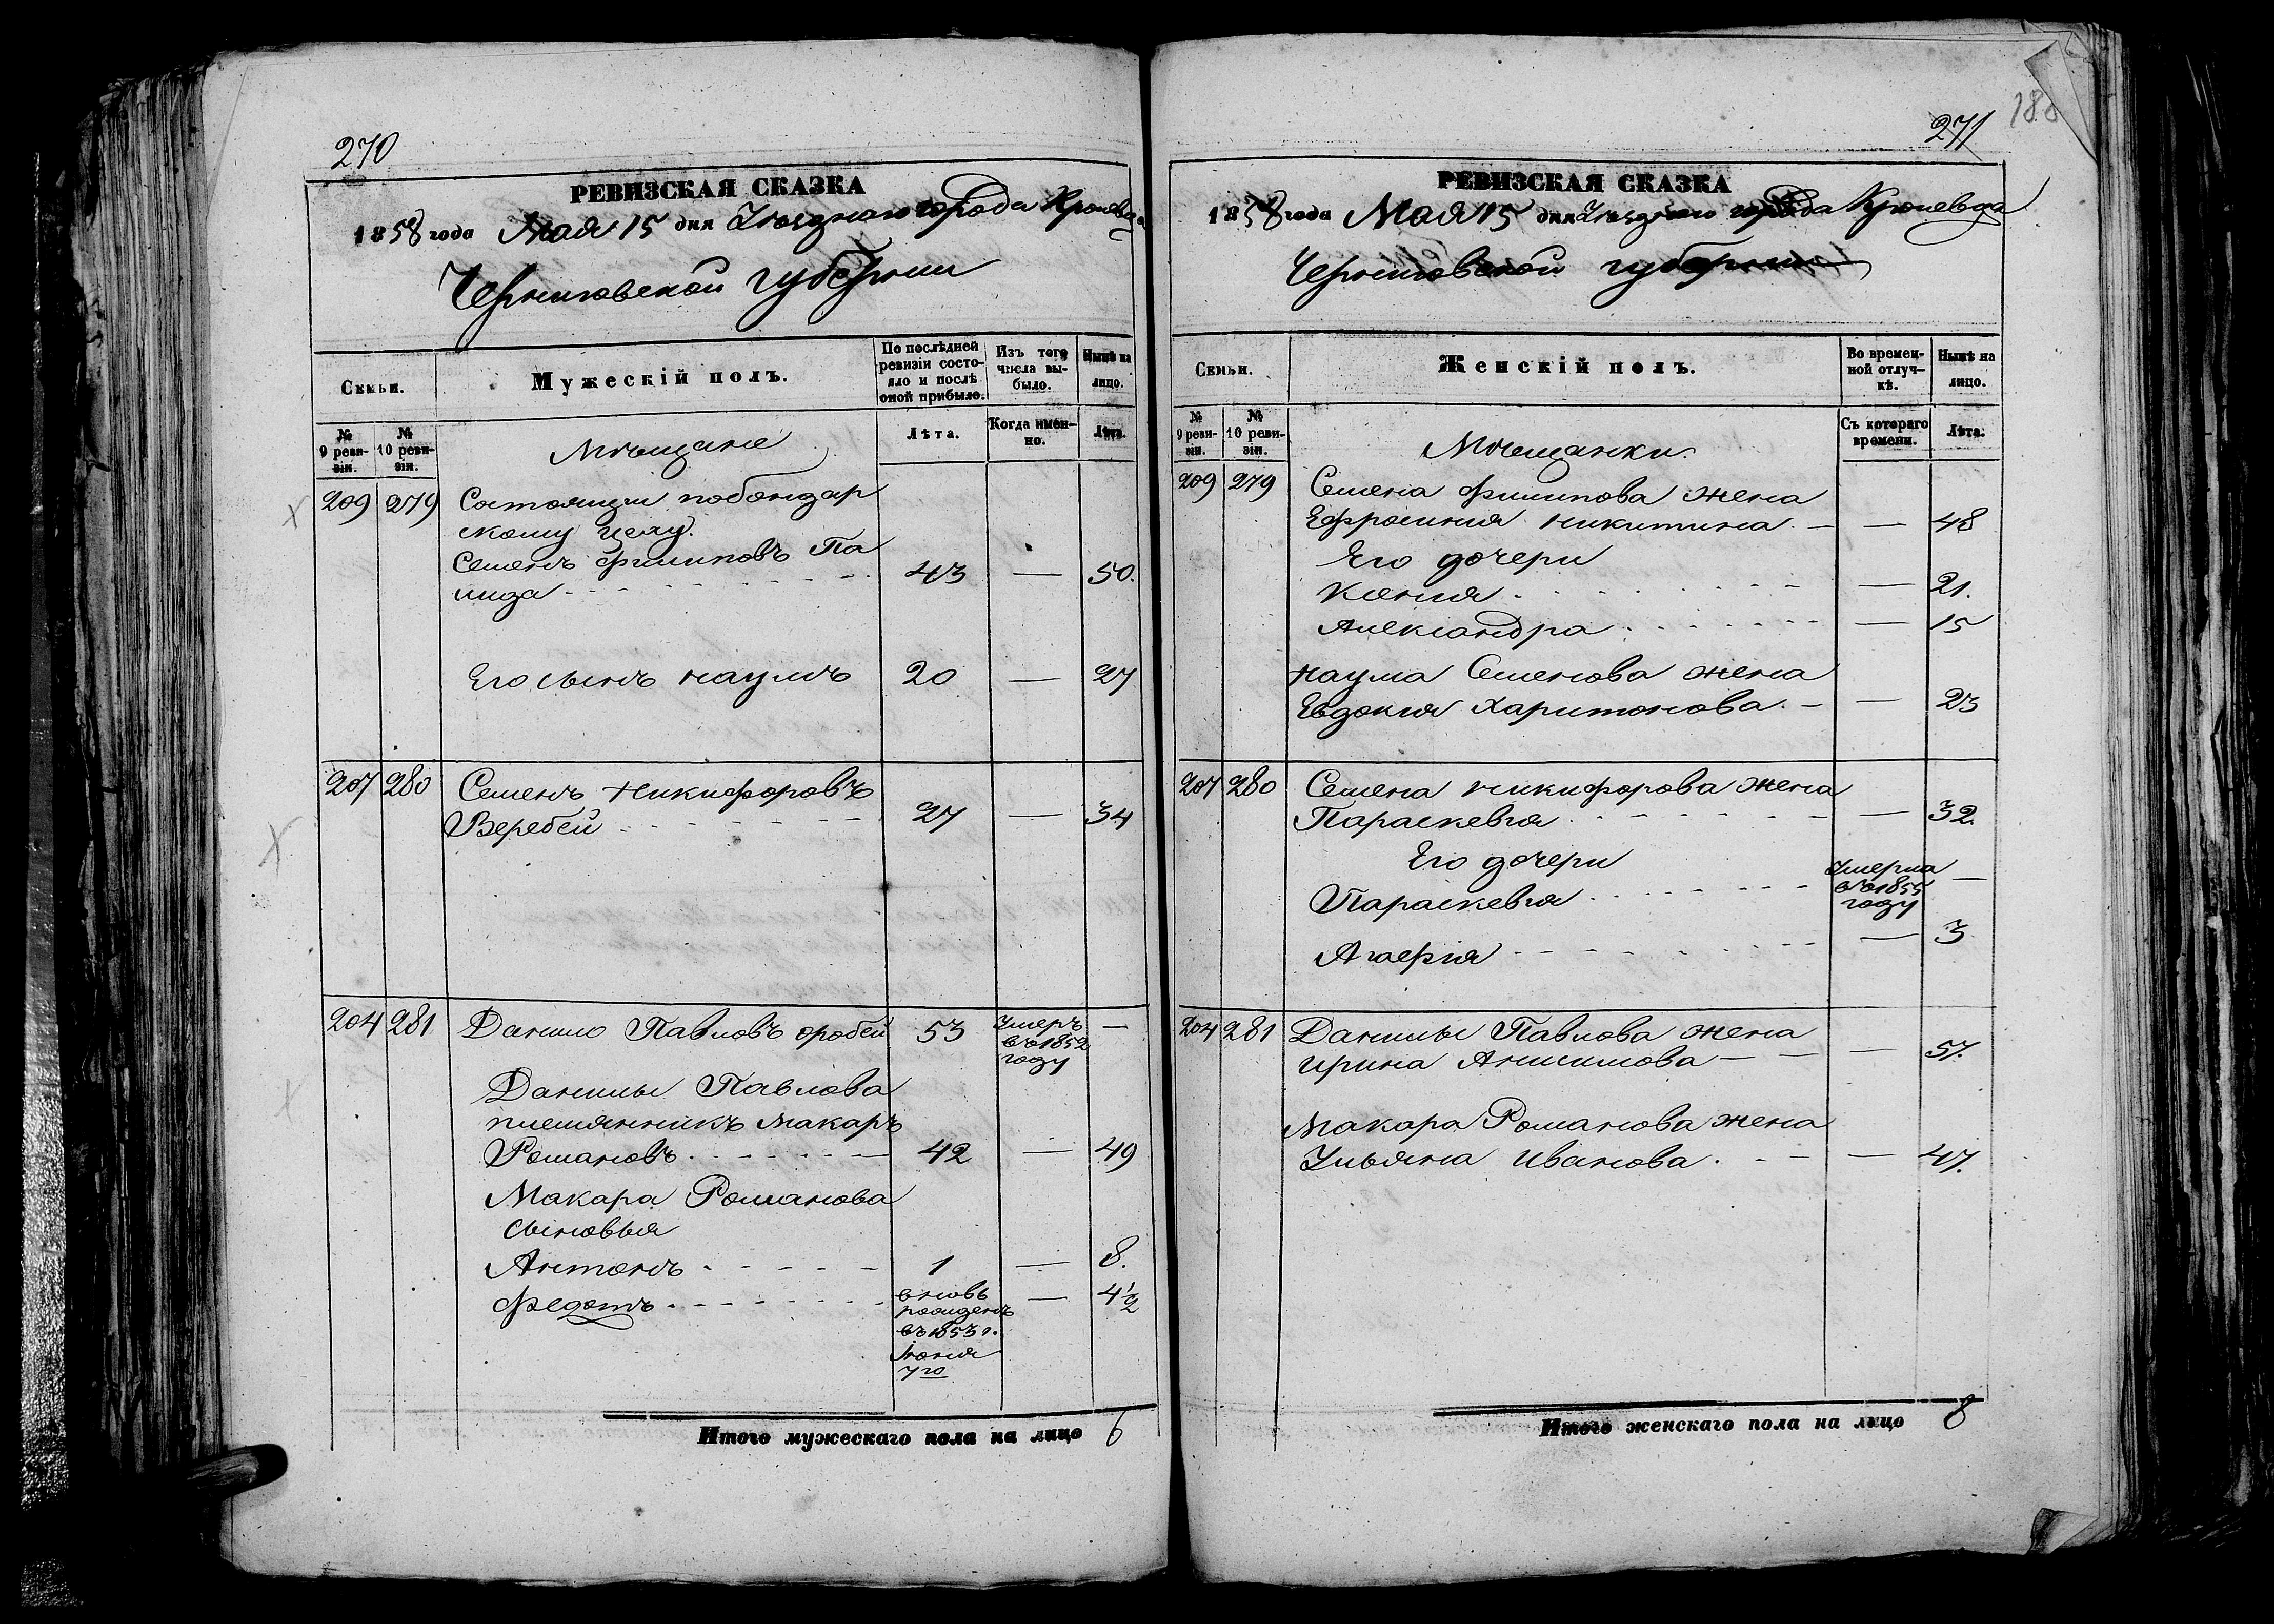 270
РЕВИЗСКАЯ СКАЗКА
1858 года Мая 15 дня Уѣзднаго города Кролевца
Черниговской губерніи
Семьи.
Мужескій полъ.
По послѣдней ревизіи состояло и послѣ оной прибыло.
Изъ того числа выбыло.
Нынѣ на лицо.
№ 9 ревизіи.
№ 10 ревизіи.
Мѣщане
Лѣта.
Когда именно.
Лѣта.
209 279 Состоящіи по бондар
скому цеху.
Семенъ Филиповъ Па
лида 43 — 50.
Его сынъ Наумъ 20 — 27
207 280 Семенъ Никифоровъ
Веребей 27 — 34
204 281 Данило Павловъ Оробей 53 Умеръ въ 1852 году —
Данилы Павлова
племянникъ Макаръ
Романовъ 42 — 49
Макара Романова
сыновья
Антонъ 1 — 8.
Федотъ вновь рожденъ въ 1853 г. Іюня 7го — 4 1/2
Итого мужескаго пола на лицо 6
188
271
РЕВИЗСКАЯ СКАЗКА
1858 года Мая 15 дня Уѣзднаго города Кролевца
Черниговской губерніи
Семьи.
Женскій полъ.
Во временной отлучкѣ.
Нынѣ на лицо.
№ 9 ревизіи.
№ 10 ревизіи.
Мѣщанки.
Съ котораго времени.
Лѣта.
209 279 Семена Филипова жена
Ефросинія Никитина. — — 48
Его дочери
Ксенія — 21.
Александра — 15
Наума Семенова жена
Евдокия Харитонова. — — 23
207 280 Семена Никифорова жена
Параскевія — 32.
Его дочери
Параскевія Умерла въ 1855 году —
Агаефія — 3
204 281 Данилы Павлова жена
Ирина Анисимова — — — 57.
Макара Романова жена
Ульяна Иванова. — 47.
Итого женскаго пола на лицо 8